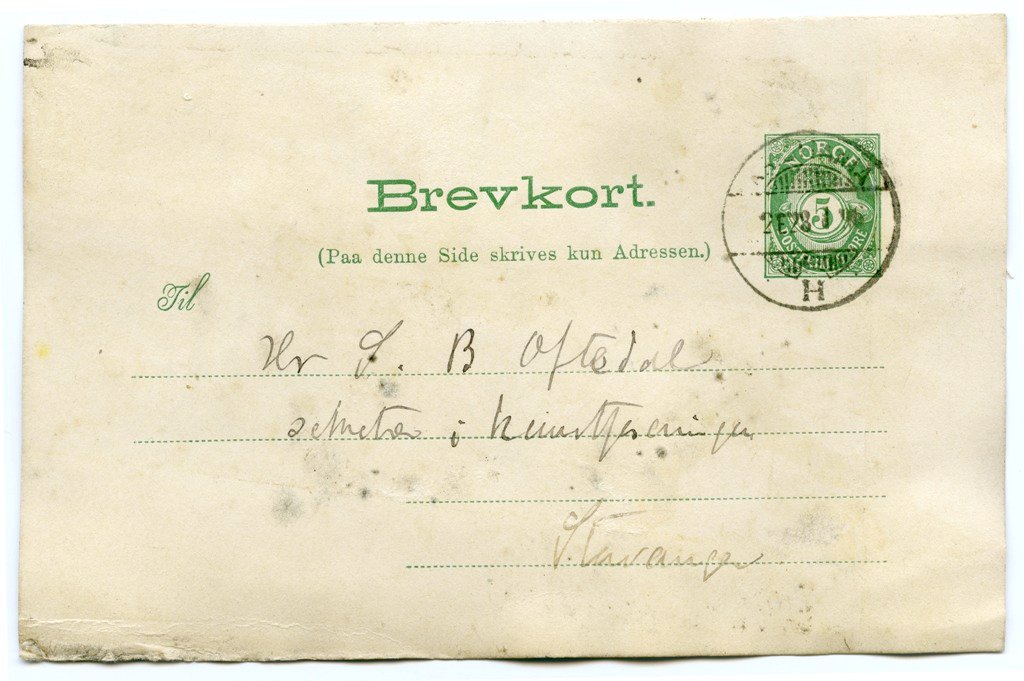 Brevkort.
(Paa denne Side skrives kun Adressen.)
NORGE
5
POSTFRIM. ØRE
H
Til
Hr S. B Oftedal
sekretær i Kunstforeningen
Stavanger